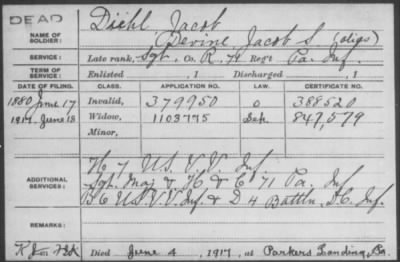 DEAD
Diehl, Jacob
NAME OF SOLDIER: Devine, Jacob S. (alias)
SERVICE: Late rank, Sgt, Co. K, 71 Reg't Pa. Inf.
TERM OF SERVICE: Enlisted , 1 Discharged , 1
DATE OF FILING. CLASS. APPLICATION NO. LAW. CERTIFICATE NO.
1880 June 17 Invalid, 379950 0 388520
1917. June 18 Widow, 1103775 847,579
Minor,
ADDITIONAL SERVICES: H 7 U.S.V.V. Inf
Sgt. Maj & H & C 71 Pa. Inf
B 6 U.S.V.V. Inf & D 4 Battln. D.C. Inf.
REMARKS:
Died June 4, 1917, at Parkers Landing, Pa.